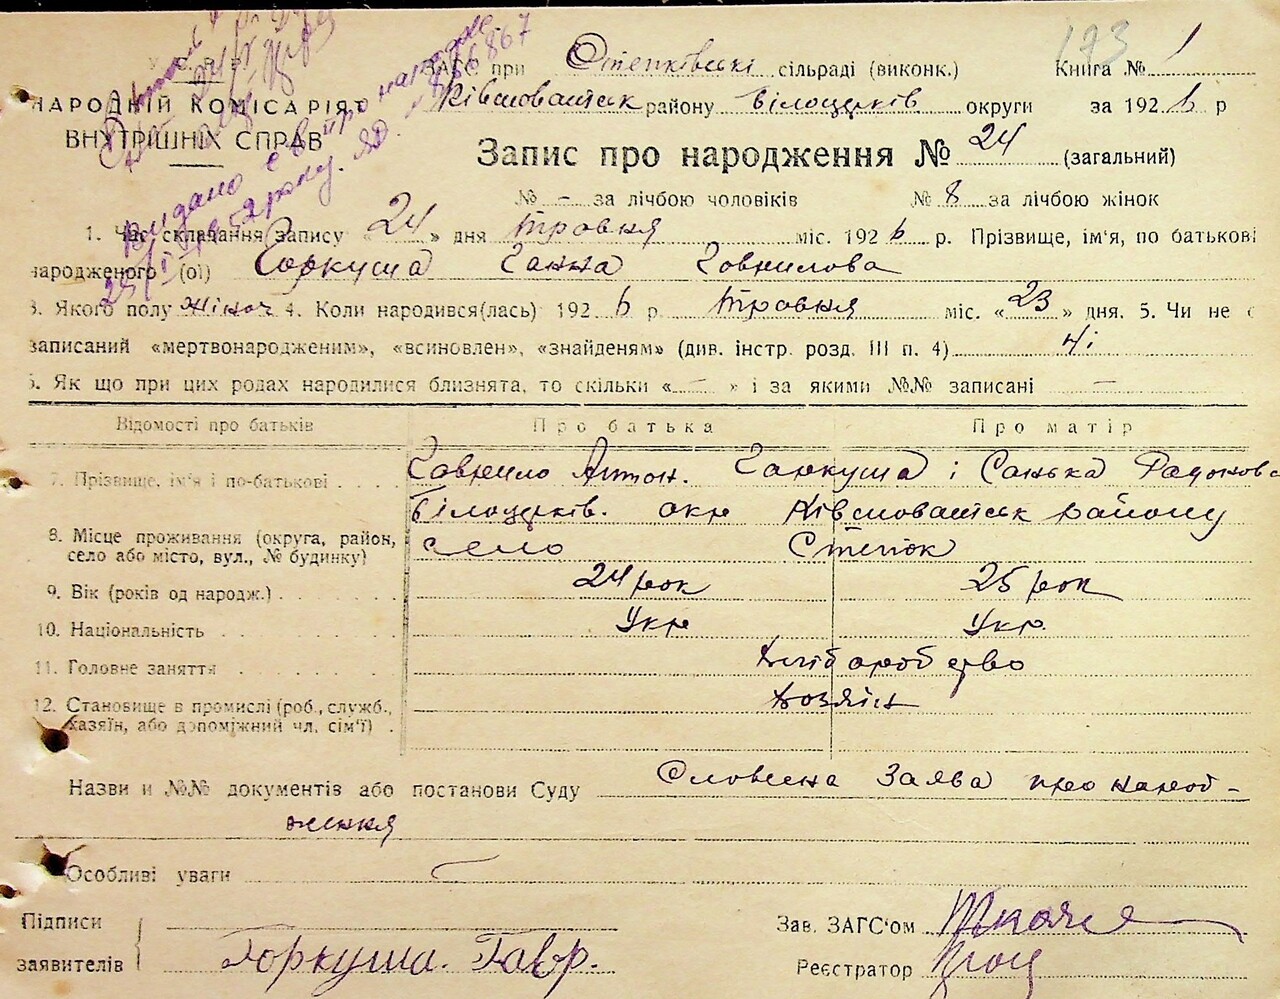 173
У.С.Р.Р.
НАРОДНІЙ КОМІСАРІЯТ
ВНУТРІШНІХ СПРАВ
ЗАГС при Степківські сільраді (виконк.) Книга № 1
району Білоцерків округи за 1926 р
Запис про народження № 24 (загальний)
№ - за лічбою чоловіків № 8 за лічбою жінок
Видано св. про народж.
1. Час складання запису « 24 » дня травня міс. 1926 р. Прізвище, ім'я, по батькові
народженого (ої) Гаркуша Ганна Гаврилова
3. Якого полу жіноч 4. Коли народився(лась) 1926 р. травня міс. «23» дня. 5. Чи не є
записаний «мертвонародженим», «всиновлен», «знайденям» (див. інстр. розд. III п. 4) ні
6. Як що при цих родах народилися близнята, то скільки « - » і за якими №№ записані -
Відомості про батьків Про батька Про матір
7. Прізвище, ім'я і по-батькові Гаврило Антон. Гаркуша і Санька
Білоцерків. окр району
8. Місце проживання (округа, район,
село або місто, вул., № будинку) село Степок
9. Вік (років од народж.) 24 рок 25 рок
10. Національність Укр Укр.
11. Головне заняття Хліборобство
12. Становище в промислі (роб., служб.,
хазяїн, або допоміжний чл. сім'ї) Хозяїн
Назви и №№ документів або постанови Суду Словесна Заява про народ-
ження
Особливі уваги -
Підписи
заявителів Горкуша. Гавр.
Зав. ЗАГС'ом
Реєстратор